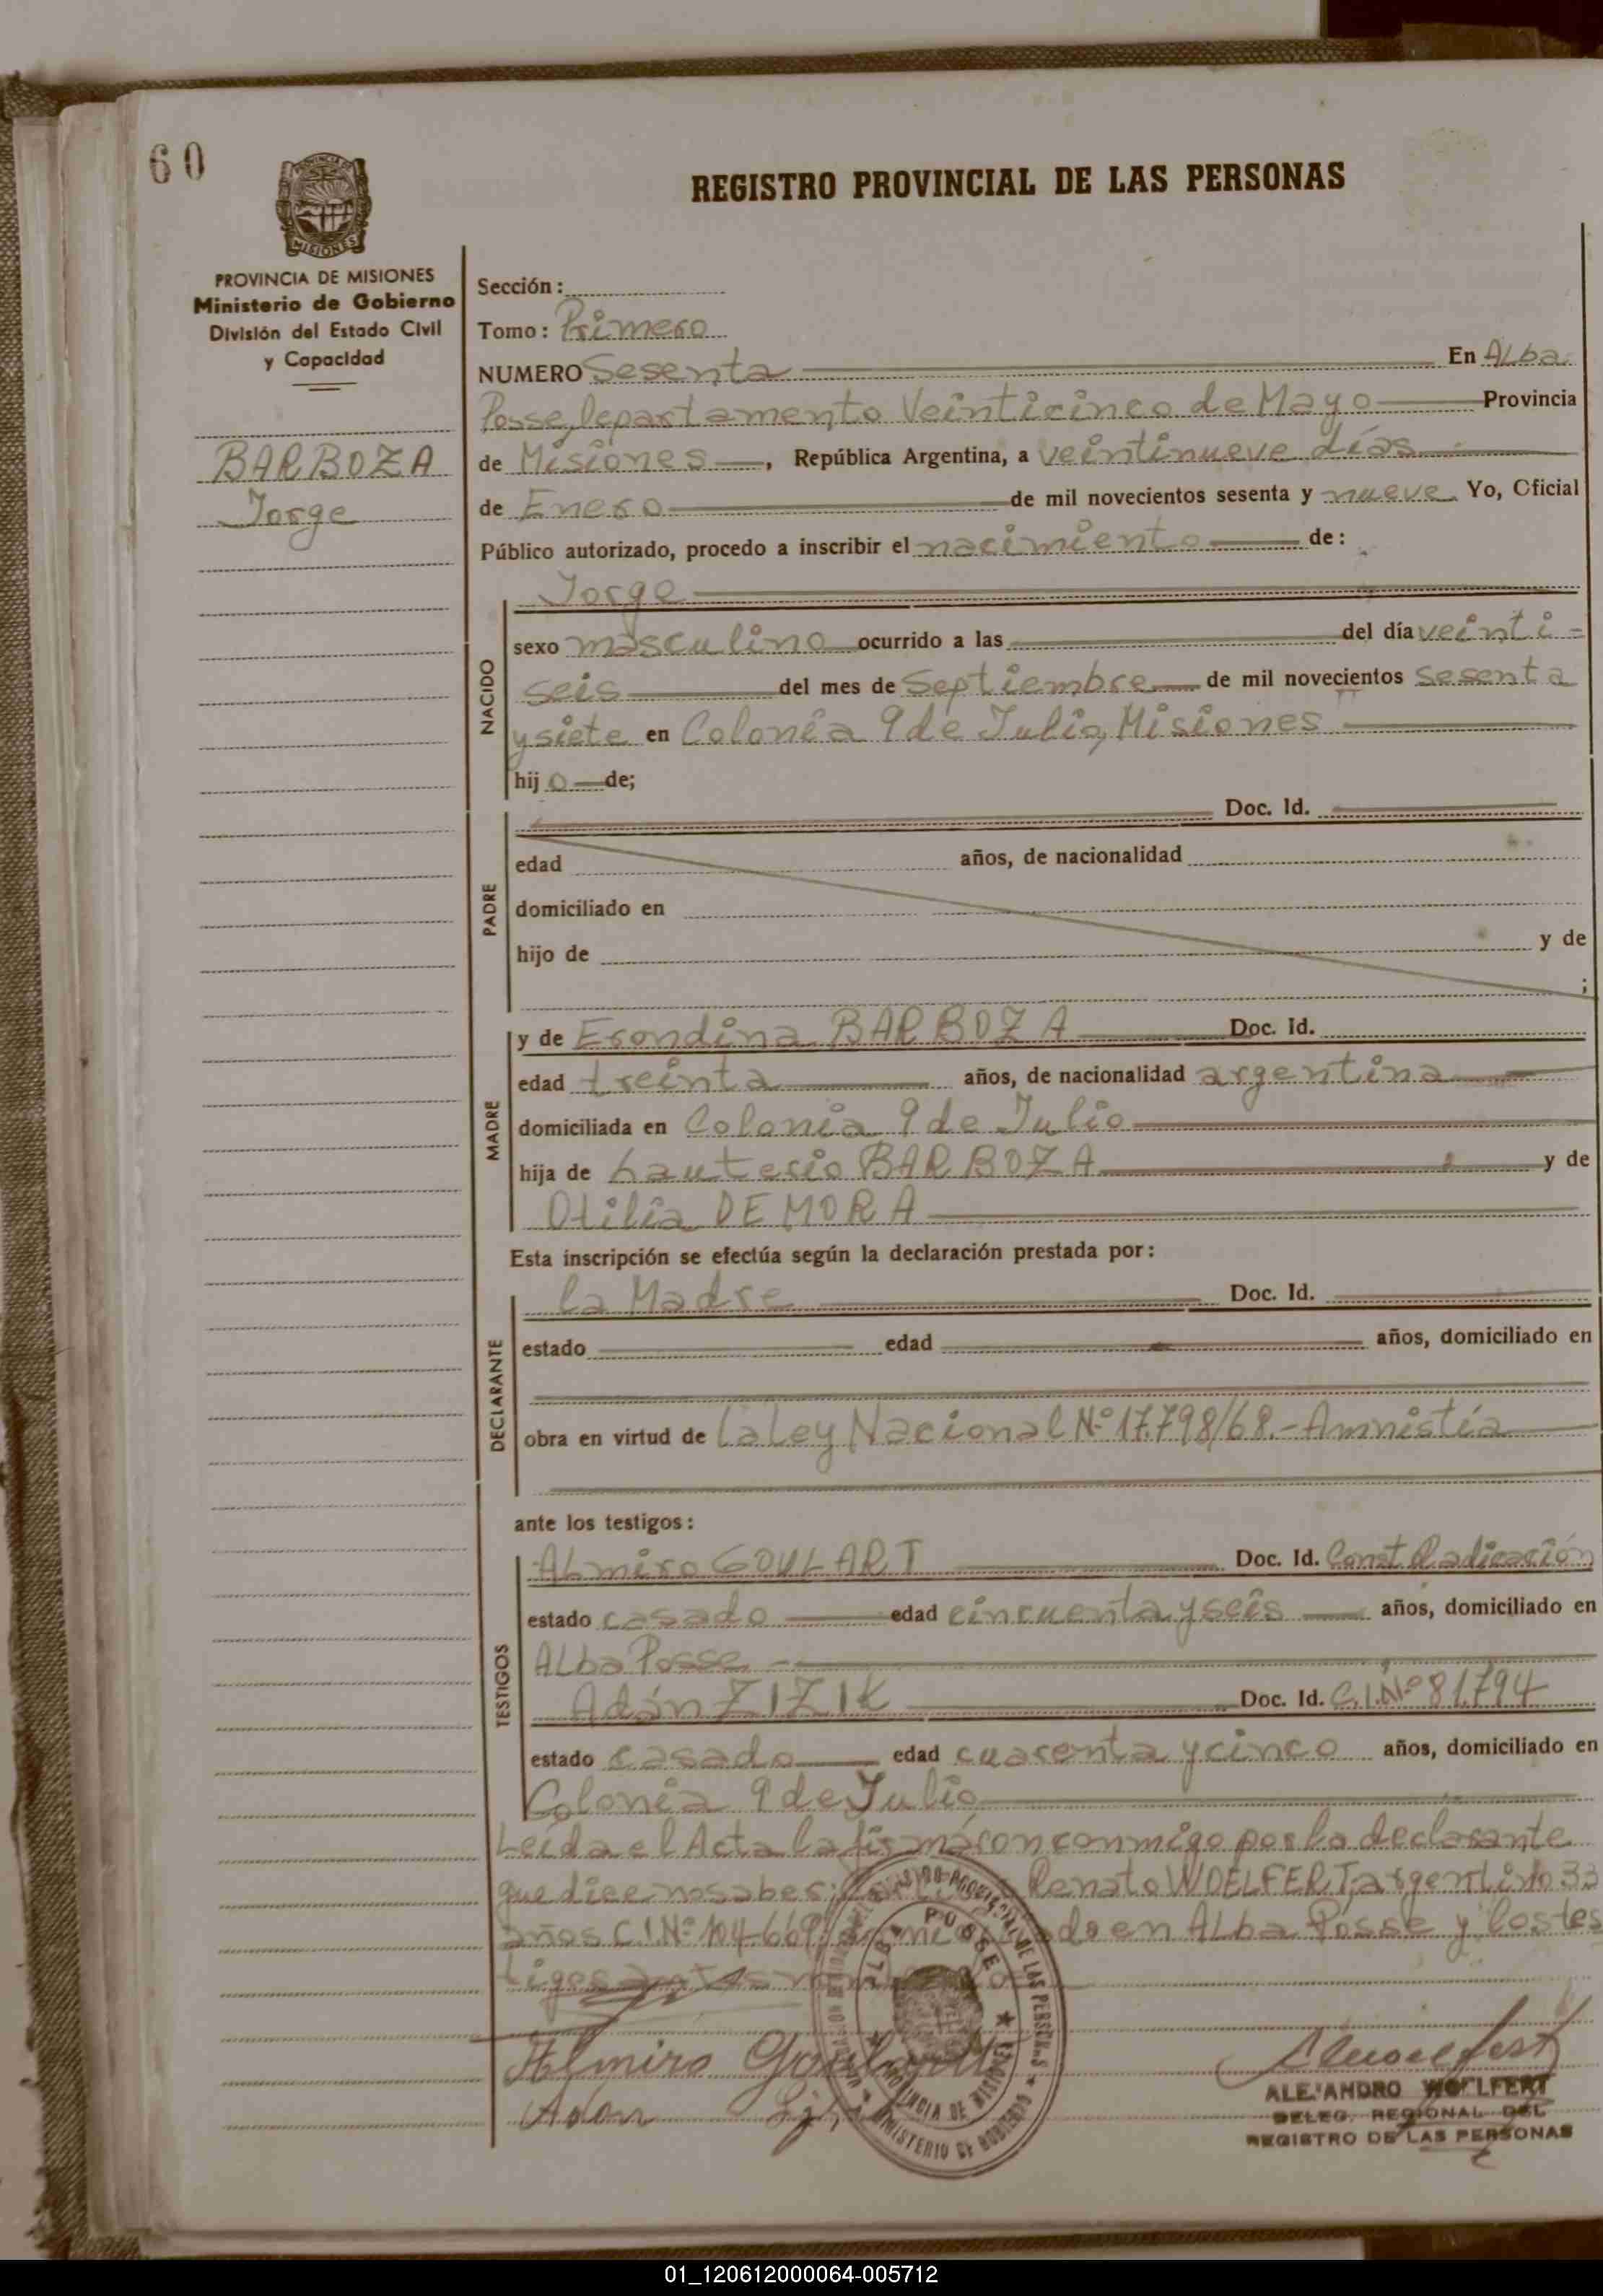 60
REGISTRO PROVINCIAL DE LAS PERSONAS
PROVINCIA DE MISIONES
Ministerio de Gobierno
División del Estado Civil
y Capacidad
BARBOZA
Jorge
Sección:
Tomo: Primero
NUMERO Sesenta En Alba
Posse, Departamento Veinticinco de Mayo Provincia
de Misiones, República Argentina, a veintinueve días
de Enero de mil novecientos sesenta y nueve. Yo, Oficial
Público autorizado, procedo a inscribir el nacimiento de:
Jorge
NACIDO
sexo masculino ocurrido a las del día veinti-
seis del mes de Septiembre de mil novecientos sesenta
y siete en Colonia 9 de Julio, Misiones
hijo de;
PADRE
Doc. Id.
edad años, de nacionalidad
domiciliado en
hijo de y de
;
MADRE
y de Erondina BARBOZA Doc. Id.
edad treinta años, de nacionalidad argentina
domiciliada en Colonia 9 de Julio
hija de Lauterio BARBOZA y de
Otilia DE MORA
Esta inscripción se efectúa según la declaración prestada por:
DECLARANTE
la Madre Doc. Id.
estado edad años, domiciliado en
obra en virtud de la Ley Nacional Nº 17.798/68.- Amnistía
ante los testigos:
TESTIGOS
Almiro GOULART Doc. Id. Const. Radicación
estado casado edad cincuenta y seis años, domiciliado en
Alba Posse
Adán ZIZIK Doc. Id. C.I.Nº 81.794
estado casado edad cuarenta y cinco años, domiciliado en
Colonia 9 de Julio
Leída el Acta la firmáron conmigo por la declarante
que dice no saber; Renato WOELFERT, argentino 33
años C.I.Nº 104.669, en Alba Posse y los tes
tigos
Almiro Goulart
Adán
ALBA POSSE
REGISTRO PROVINCIAL DE LAS PERSONAS
PROVINCIA DE MISIONES
MINISTERIO DE GOBIERNO
ALEJANDRO WOELFERT
DELEG. REGIONAL DEL
REGISTRO DE LAS PERSONAS
01_120612000064-005712